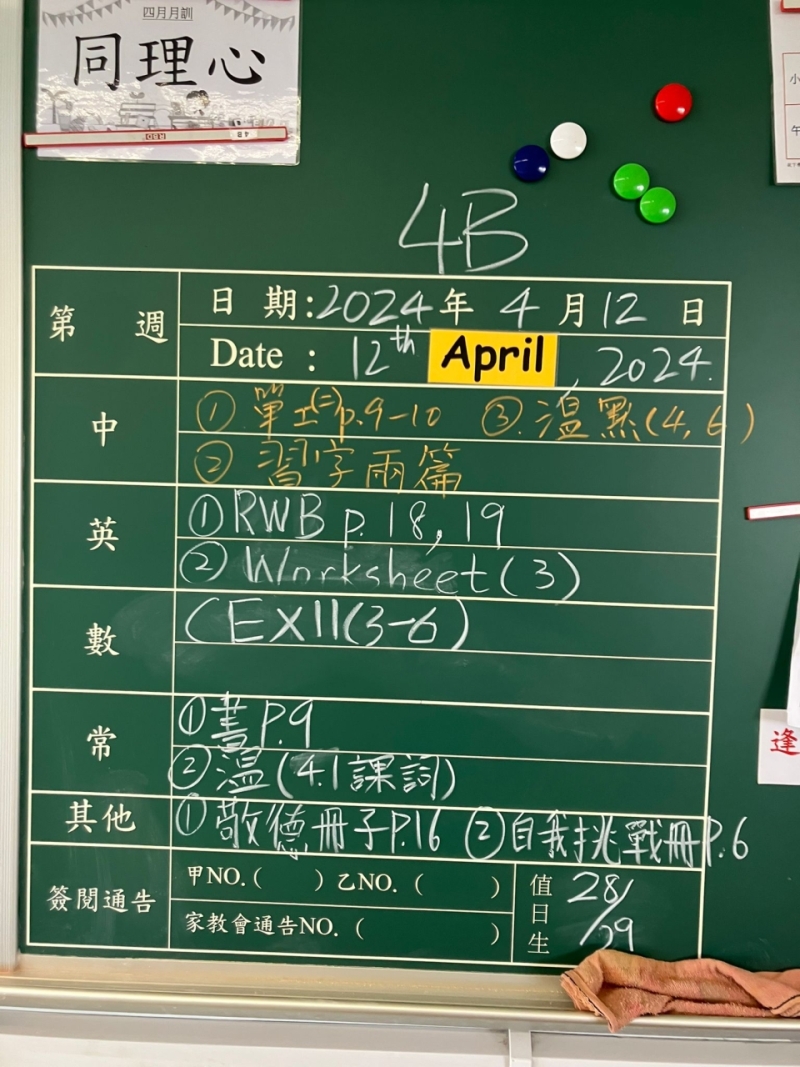 四月月訓
同理心
4B
第 週
日 期:2024年 4 月 12 日
Date : 12th April, 2024.
中
① 單工(二)p.9-10 ③ 溫默(4, 6)
② 習字兩篇
英
① RWB p. 18, 19
② Worksheet (3)
數
CEX11(3-6)
常
① 書 P.9
② 溫 (4.1課詞)
其他
① 敬德冊子P.16 ② 自我挑戰冊P.6
簽閱通告
甲NO. ( ) 乙NO. ( )
家教會通告NO. ( )
值日生
28/
/29
小
午
逢